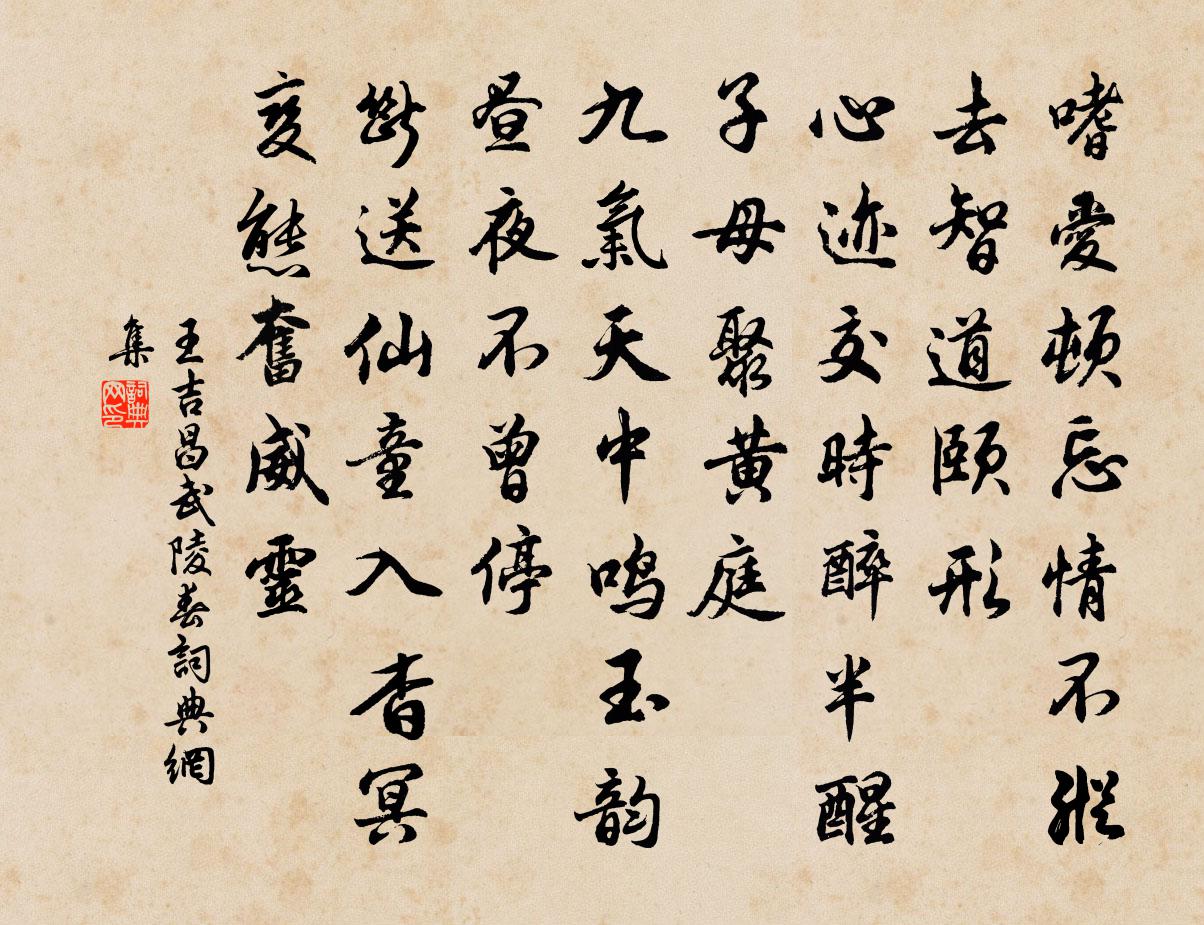 嗜愛頓忘情不縱
去智道頤形
心迹交時醉半醒
子母聚黄庭
九氣天中鸣玉韵
昼夜不曾停
斷送仙童入杳冥
变態奮威靈
王吉昌武陵春詞典網
集
詞典网印